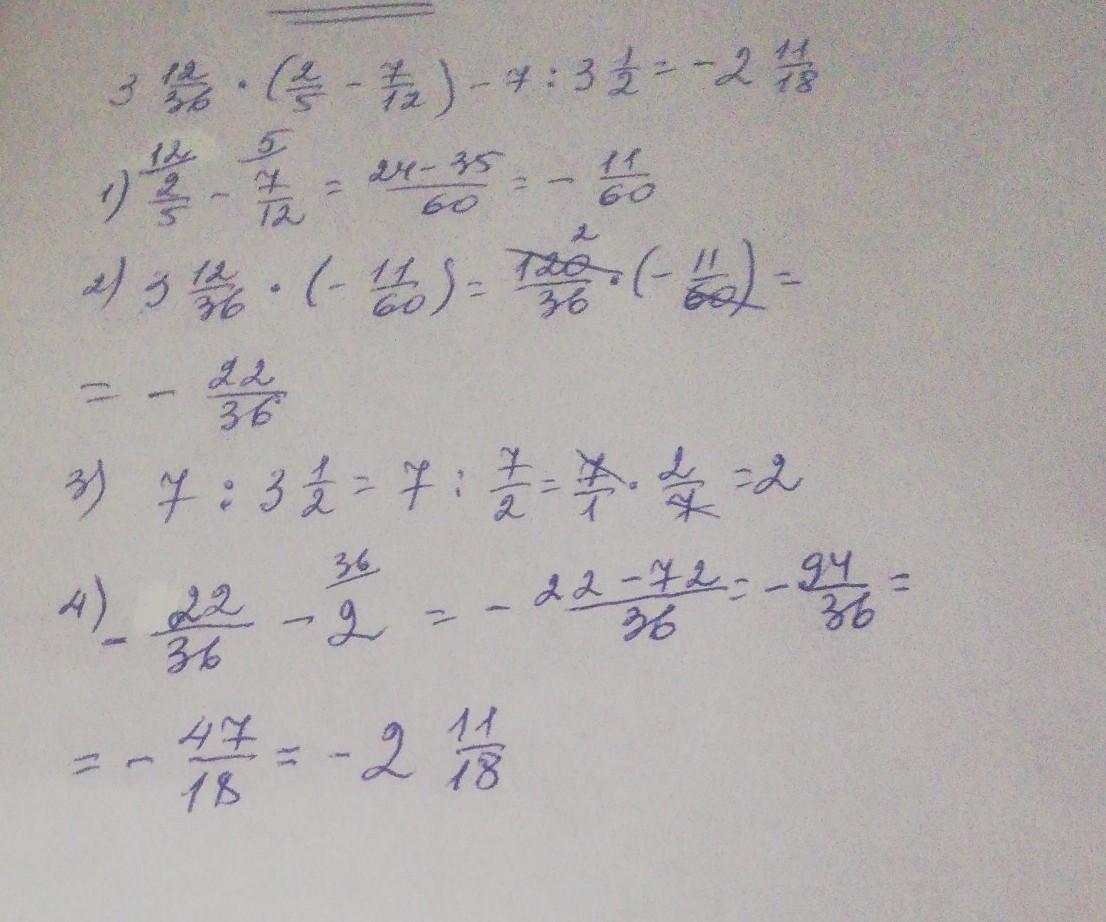 3 12/36 · (2/5 - 7/12) - 7 : 3 1/2 = -2 11/18
1) 12/ 2/5 - 5/ 7/12 = 24-35/60 = - 11/60
2) 3 12/36 · (- 11/60) = 120/36 2 · (- 11/60) =
= - 22/36
3) 7 : 3 1/2 = 7 : 7/2 = 7/1 · 2/7 = 2
4) - 22/36 - 36/ 2 = - 22-72/36 = - 94/36 =
= - 47/18 = - 2 11/18